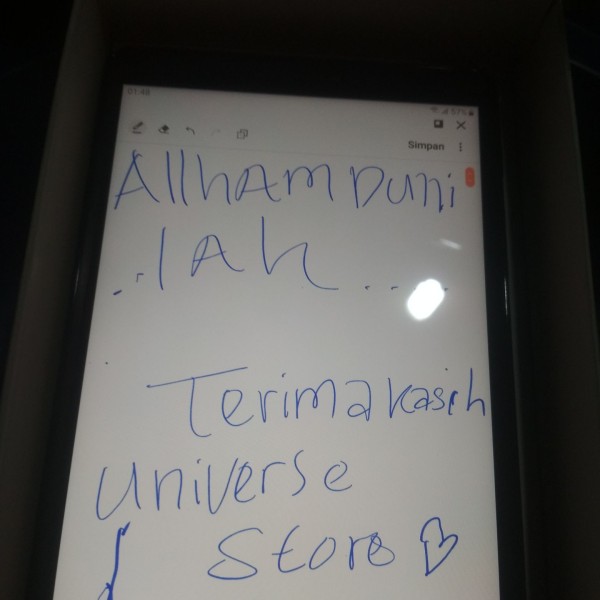 01:48
57%
Simpan
AllhAmDuni
..lAh.....
Terimakasih
universe
Store